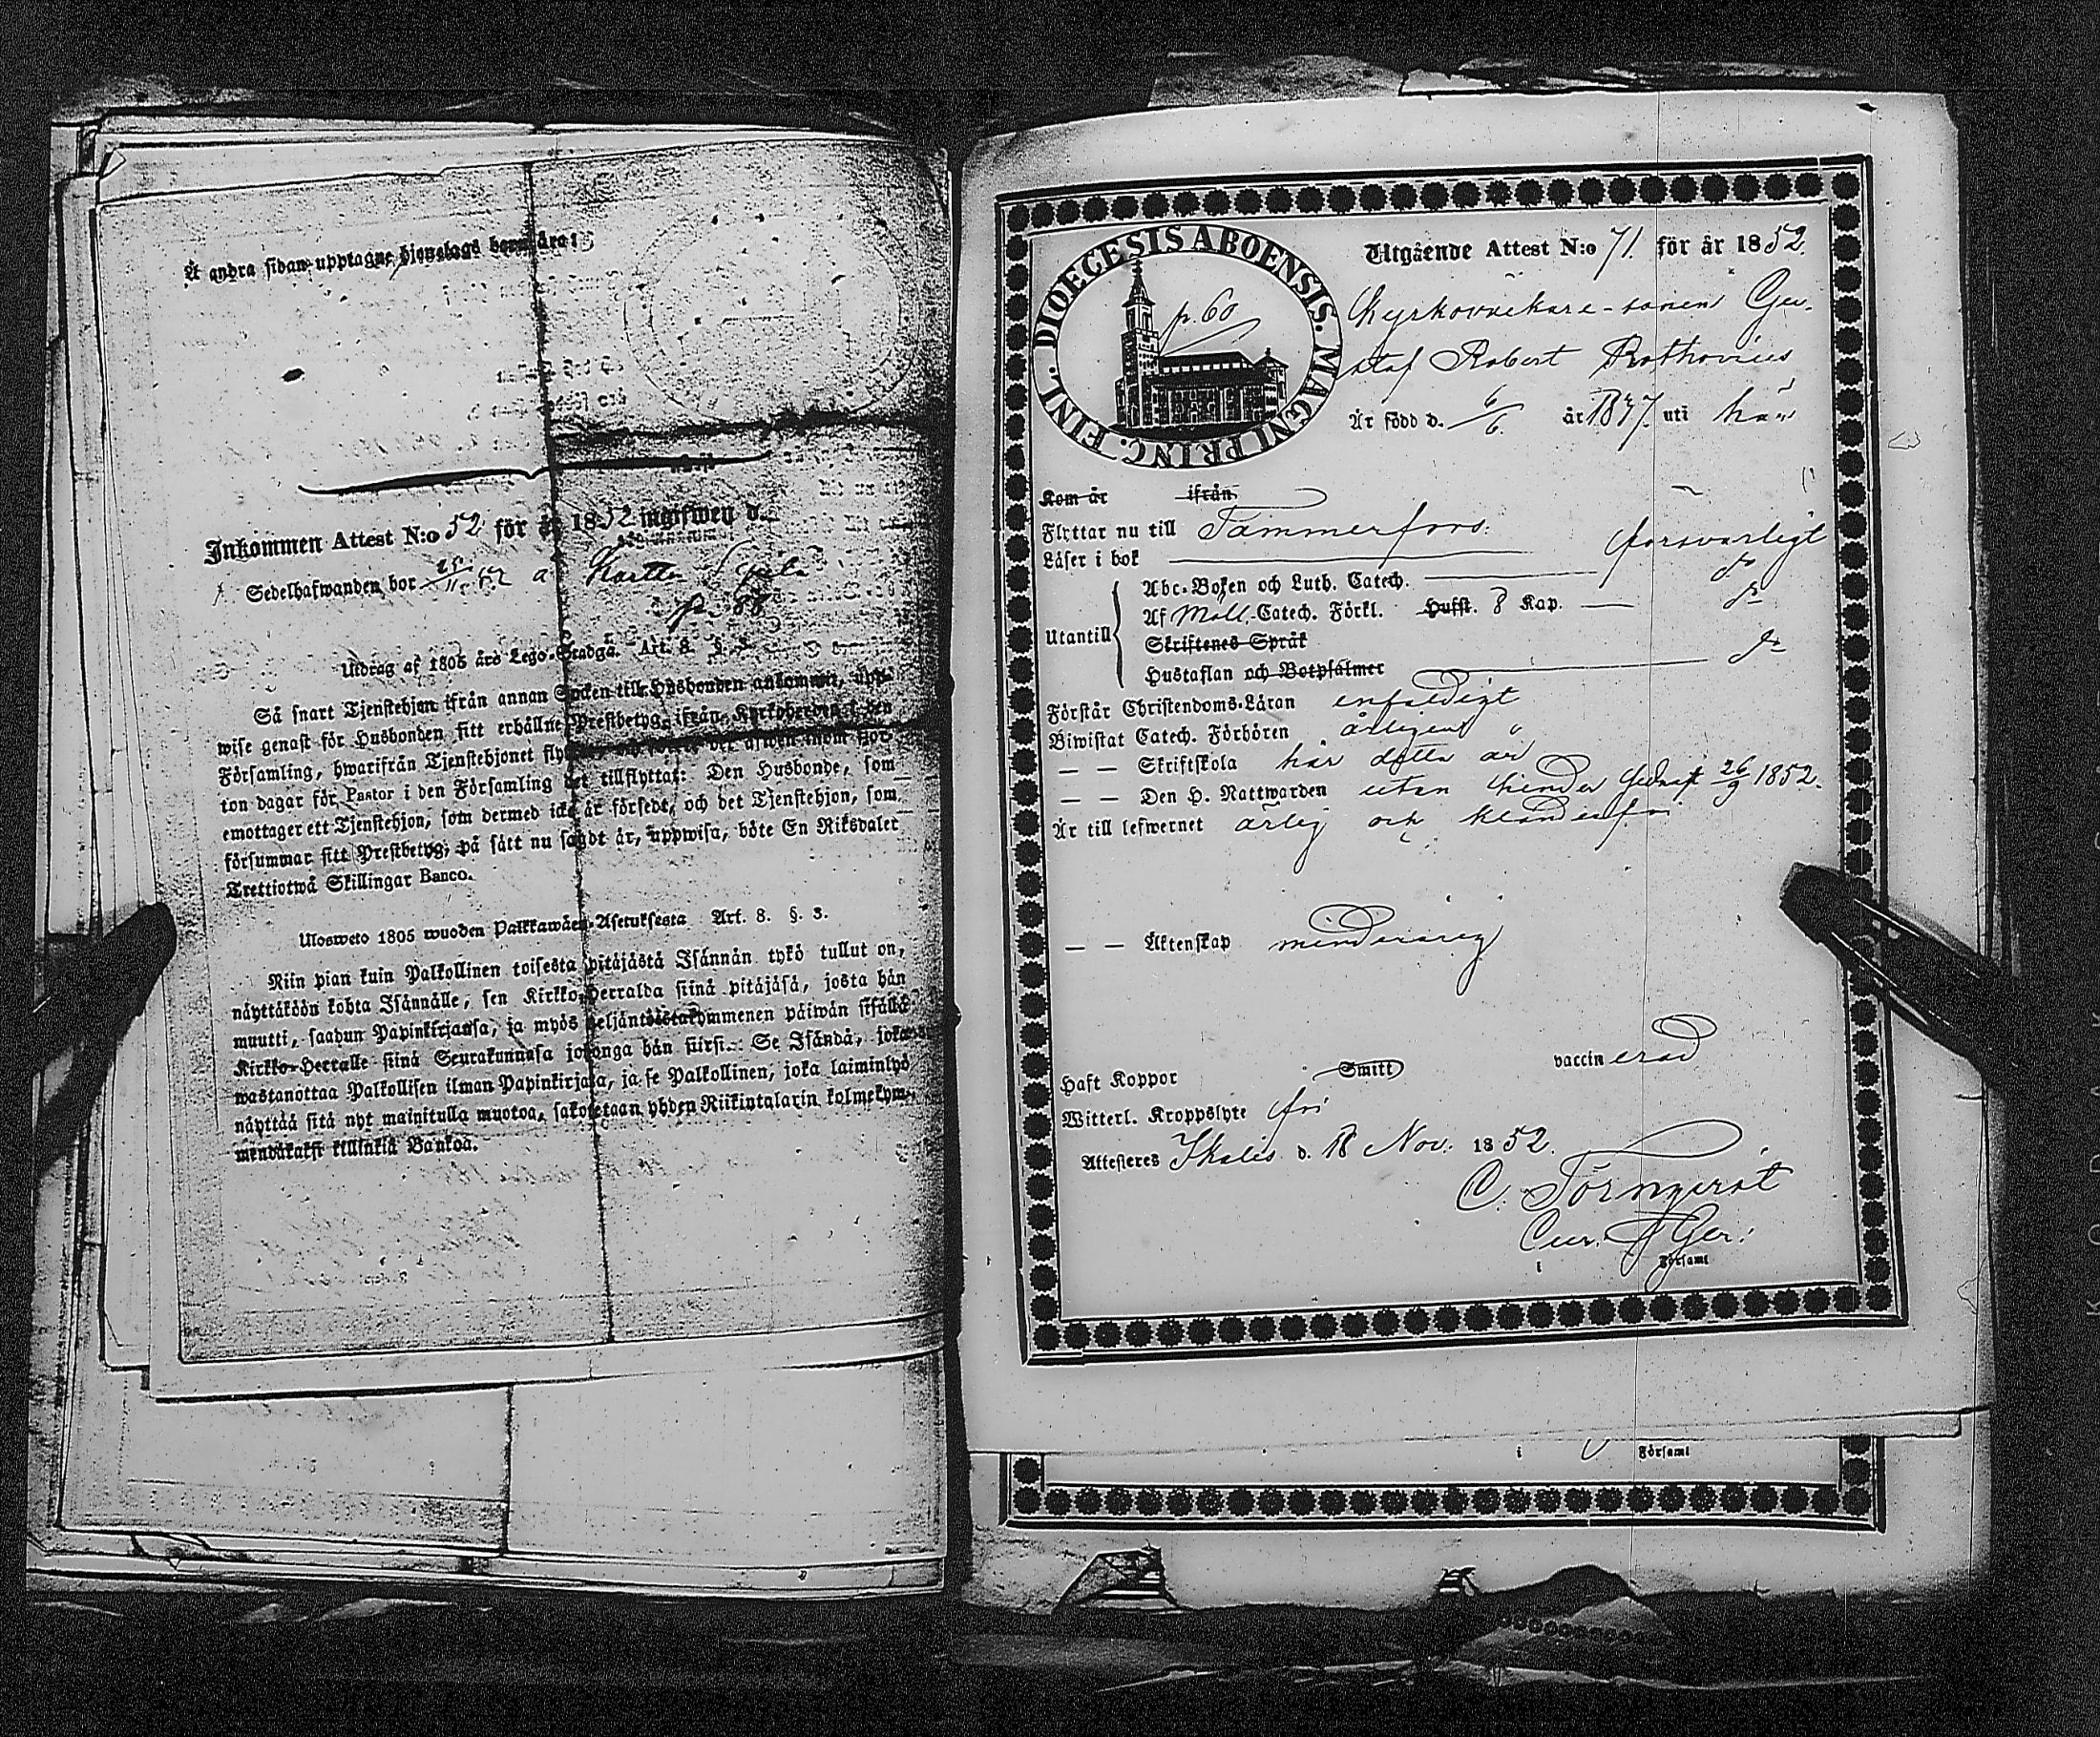 Å andra sidan upptagne hjonelags barn äro:
Inkommen Attest N:o 52 för år 1852 ingifwen d.
Sedelhafwanden bor
Utdrag af 1805 års Lego-Stadga. Art. 8. §.
Så snart Tjenstehjon ifrån annan Socken till Husbonden ankommit, upp-
wise genast för Husbonden sitt erhållne Prestbetyg ifrån Kyrkoherden i den
Församling, hwarifrån Tjenstehjonet
ton dagar för Pastor i den Församling det tillflyttat: Den Husbonde, som
emottager ett Tjenstehjon, som dermed icke är försedt, och det Tjenstehjon, som
försummar sitt Prestbetyg, på sått nu sagdt är, uppwisa, böte En Riksdaler
Trettiotwå Skillingar Banco.
Ulosweto 1805 wuoden Palkkawäen-Asetuksesta Art. 8. §. 3.
Niin pian kuin Palkollinen toisesta pitäjästä Isännän tykö tullut on,
näyttäköön kohta Isännälle, sen Kirkko-Herralda siinä pitäjäsä, josta hän
muutti, saadun Papinkirjansa, ja myös neljäntöistakymmenen päiwän sisällä
Kirkko-Herralle siinä Seurakunnasa johonga hän siirsi. Se Isändä, joka
wastanottaa Palkollisen ilman Papinkirjata, ja se Palkollinen, joka laiminlyö
näyttää sitä nyt mainitulla muotoa, sakotetaan yhden Riikintalarin kolmekym-
mendäkaksi killinkiä Bankoa.
DIOECESIS ABOENSIS. MAGNI PRINC. FINL.
p. 60
Utgående Attest N:o 71. för år 1852.
Kyrkowäkare-sonen Gu-
staf Robert Rothovius
Är född d. 6/6. år 1837. uti här
Kom år ifrån
Flyttar nu till Tammerfors.
Läser i bok försvarligt
Utantill
Abc-Boken och Luth. Catech. do
Af Möll. Catech. Förkl. Hufst. 8 Kap. do
Skriftenes Språk
Hustaflan och Botpsalmer do
Förstår Christendoms-Läran enfaldigt
Biwistat Catech. Förhören årligen
— — Skriftskola här detta år
— — Den H. Nattwarden utan hinder sednast 26/9 1852.
Är till lefwernet ärlig och klanderfri
— — Äktenskap minderårig
Haft Koppor Smitt vaccinerad
Witterl. Kroppslyte fri
Attesteres Ikalis d. 18 Nov. 1852.
C. Törnqvist
i Församl
i Församl